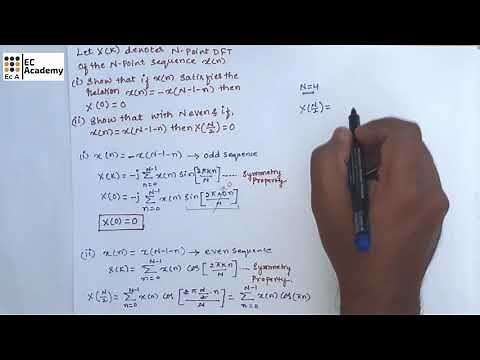 EC
Academy
EC A
Let X(K) denotes N-Point DFT
of the N-Point sequence x(n)
(i) Show that if x(n) satisfies the
relation x(n) = -x(N-1-n) then
X(0) = 0
(ii) Show that with N even & if,
x(n) = x(N-1-n) then X(N/2) = 0
(i) x(n) = -x(N-1-n) → odd sequence
X(K) = -j Σ_{n=0}^{N-1} x(n) sin[2πKn/N] ---- Symmetry Property
X(0) = -j Σ_{n=0}^{N-1} x(n) sin[2π(0)n/N] 0
X(0) = 0
(ii) x(n) = x(N-1-n) → even sequence
X(K) = Σ_{n=0}^{N-1} x(n) cos[2πKn/N] - Symmetry Property
X(N/2) = Σ_{n=0}^{N-1} x(n) cos[2π N/2 · n/N] = Σ_{n=0}^{N-1} x(n) cos(πn)
N=4
X(N/2) =